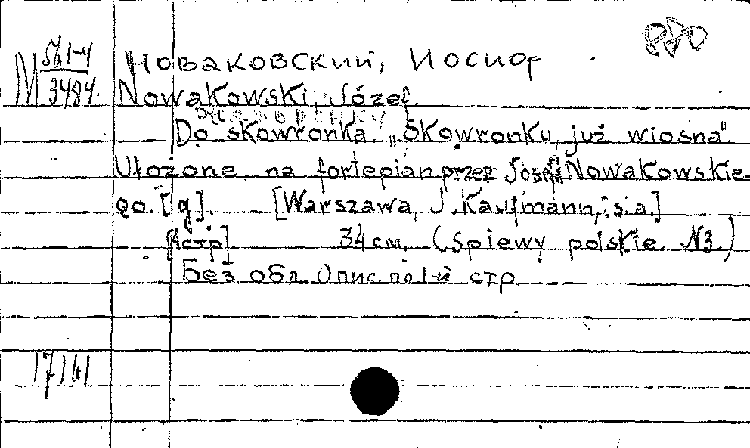 М 561-4
3484
880
Новаковский, Иосиф
Nowakowski, Józef
Жаворонку
Do skowronka. „Skowronku, już wiosna"
Ułożone na fortepian przez Józefa Nowakowskie-
go. [g]. [Warszawa, J. Kaufmann, s.a.]
стр] 34 см. (Śpiewy polskie. N3.)
Без обл. Опис. по 1-й стр
17/61